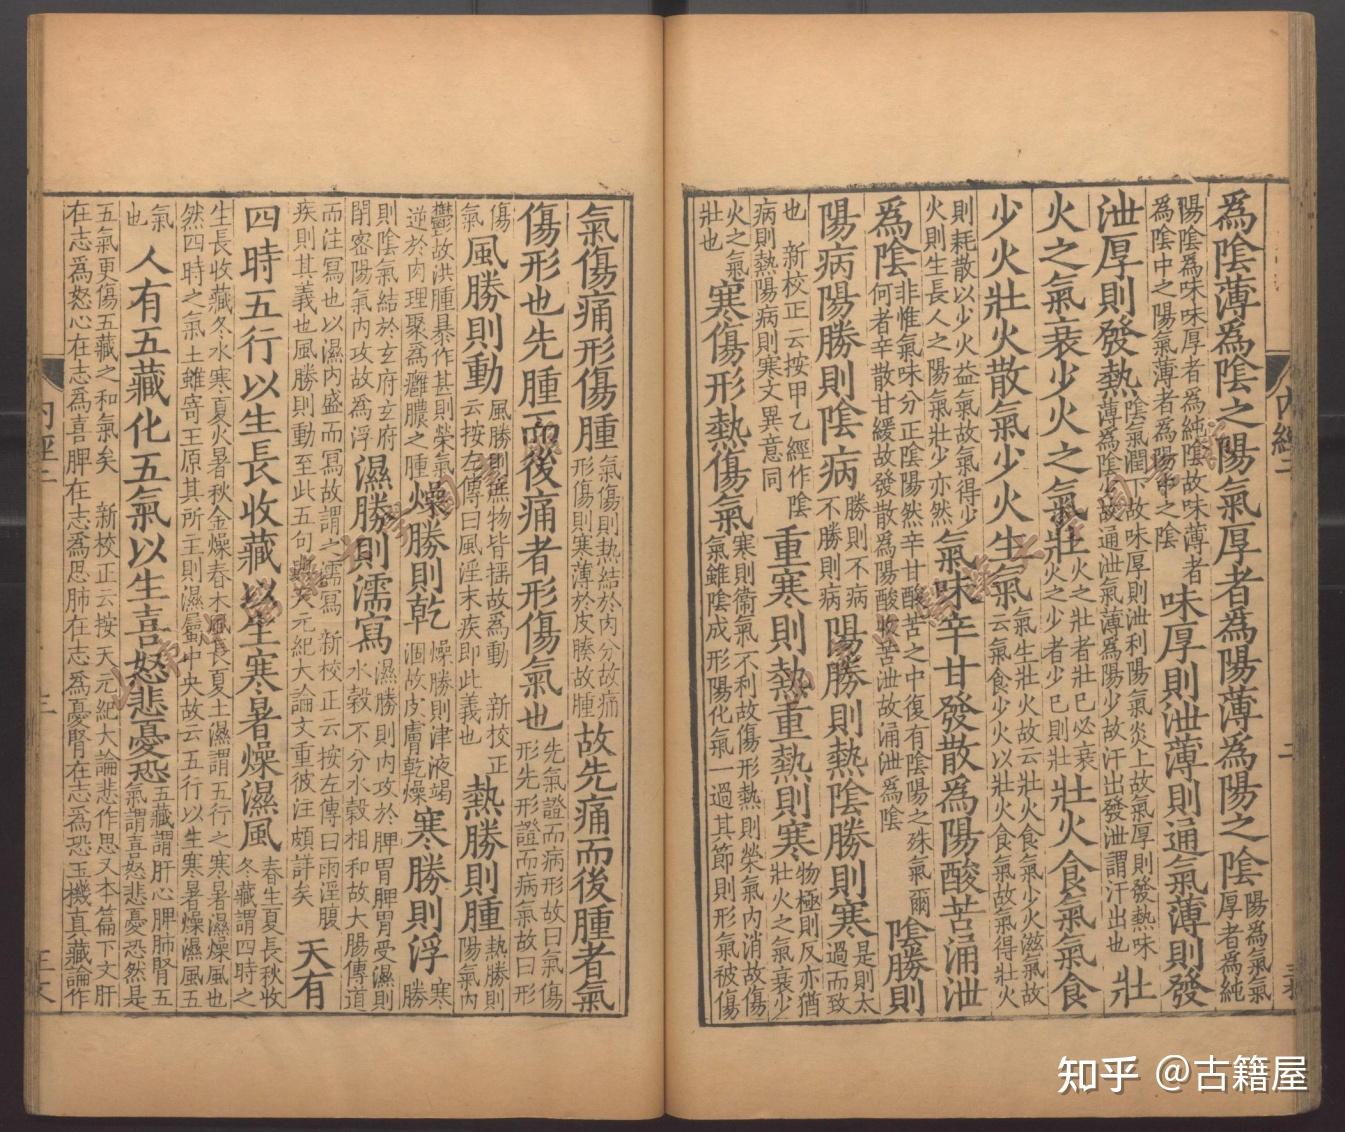 爲陰薄爲陰之陽氣厚者爲陽薄爲陽之陰陽爲氣氣厚者爲純
陽陰爲味味厚者爲純陰故味薄者爲陰中之陽氣薄者爲陽中之陰味厚則泄薄則通氣薄則發
泄厚則發熱陰氣潤下故味厚則泄利陽氣炎上故氣厚則發熱味薄爲陰少故通泄氣薄爲陽少故汗出發泄謂汗出也壯
火之氣衰少火之氣壯火之壯者壯已必衰火之少者少已則壯壯火食氣氣食
少火壯火散氣少火生氣氣生壯火故云壯火食氣少火滋氣故云氣食少火以壯火食氣故氣得壯火
則耗散以少火益氣故氣得少火則生長人之陽氣壯少亦然氣味辛甘發散爲陽酸苦涌泄
爲陰非惟氣味分正陰陽然辛甘酸苦之中復有陰陽之殊氣爾何者辛散甘緩故發散爲陽酸收苦泄故涌泄爲陰陰勝則
陽病陽勝則陰病勝則不病不勝則病陽勝則熱陰勝則寒是則太過而致
也 新校正云按甲乙經作陰病則熱陽病則寒文異意同重寒則熱重熱則寒物極則反亦猶壯火之氣衰少
火之氣壯也寒傷形熱傷氣寒則衞氣不利故傷形熱則榮氣內消故傷氣雖陰成形陽化氣一過其節則形氣被傷
內經二
二
氣傷痛形傷腫氣傷則熱結於肉分故痛形傷則寒薄於皮腠故腫故先痛而後腫者氣
傷形也先腫而後痛者形傷氣也先氣證而病形故曰氣傷形先形證而病氣故曰形
傷氣風勝則動風勝則庶物皆揺故爲動 新校正云按左傳曰風淫末疾即此義也熱勝則腫熱勝則陽氣內
鬱故洪腫暴作甚則榮氣逆於肉理聚爲癰膿之腫燥勝則乾燥勝則津液竭涸故皮膚乾燥寒勝則浮寒勝
則陰氣結於玄府玄府閉密陽氣內攻故爲浮濕勝則濡寫濕勝則內攻於脾胃脾胃受濕則水穀不分水穀相和故大腸傳道
而注寫也以濕內盛而寫故謂之濡寫 新校正云按左傳曰雨淫腹疾則其義也風勝則動至此五句與天元紀大論文重彼注頗詳矣天有
四時五行以生長收藏以生寒暑燥濕風春生夏長秋收冬藏謂四時之
生長收藏冬水寒夏火暑秋金燥春木風長夏土濕謂五行之寒暑濕燥風也然四時之氣土雖寄王原其所主則濕屬中央故云五行以生寒暑燥濕風五
氣也人有五藏化五氣以生喜怒悲憂恐五藏謂肝心脾肺腎五氣謂喜怒悲憂恐然是
五氣更傷五藏之和氣矣 新校正云按天元紀大論悲作思又本篇下文肝在志爲怒心在志爲喜脾在志爲思肺在志爲憂腎在志爲恐玉機真藏論作
內經二
三
知乎 @古籍屋